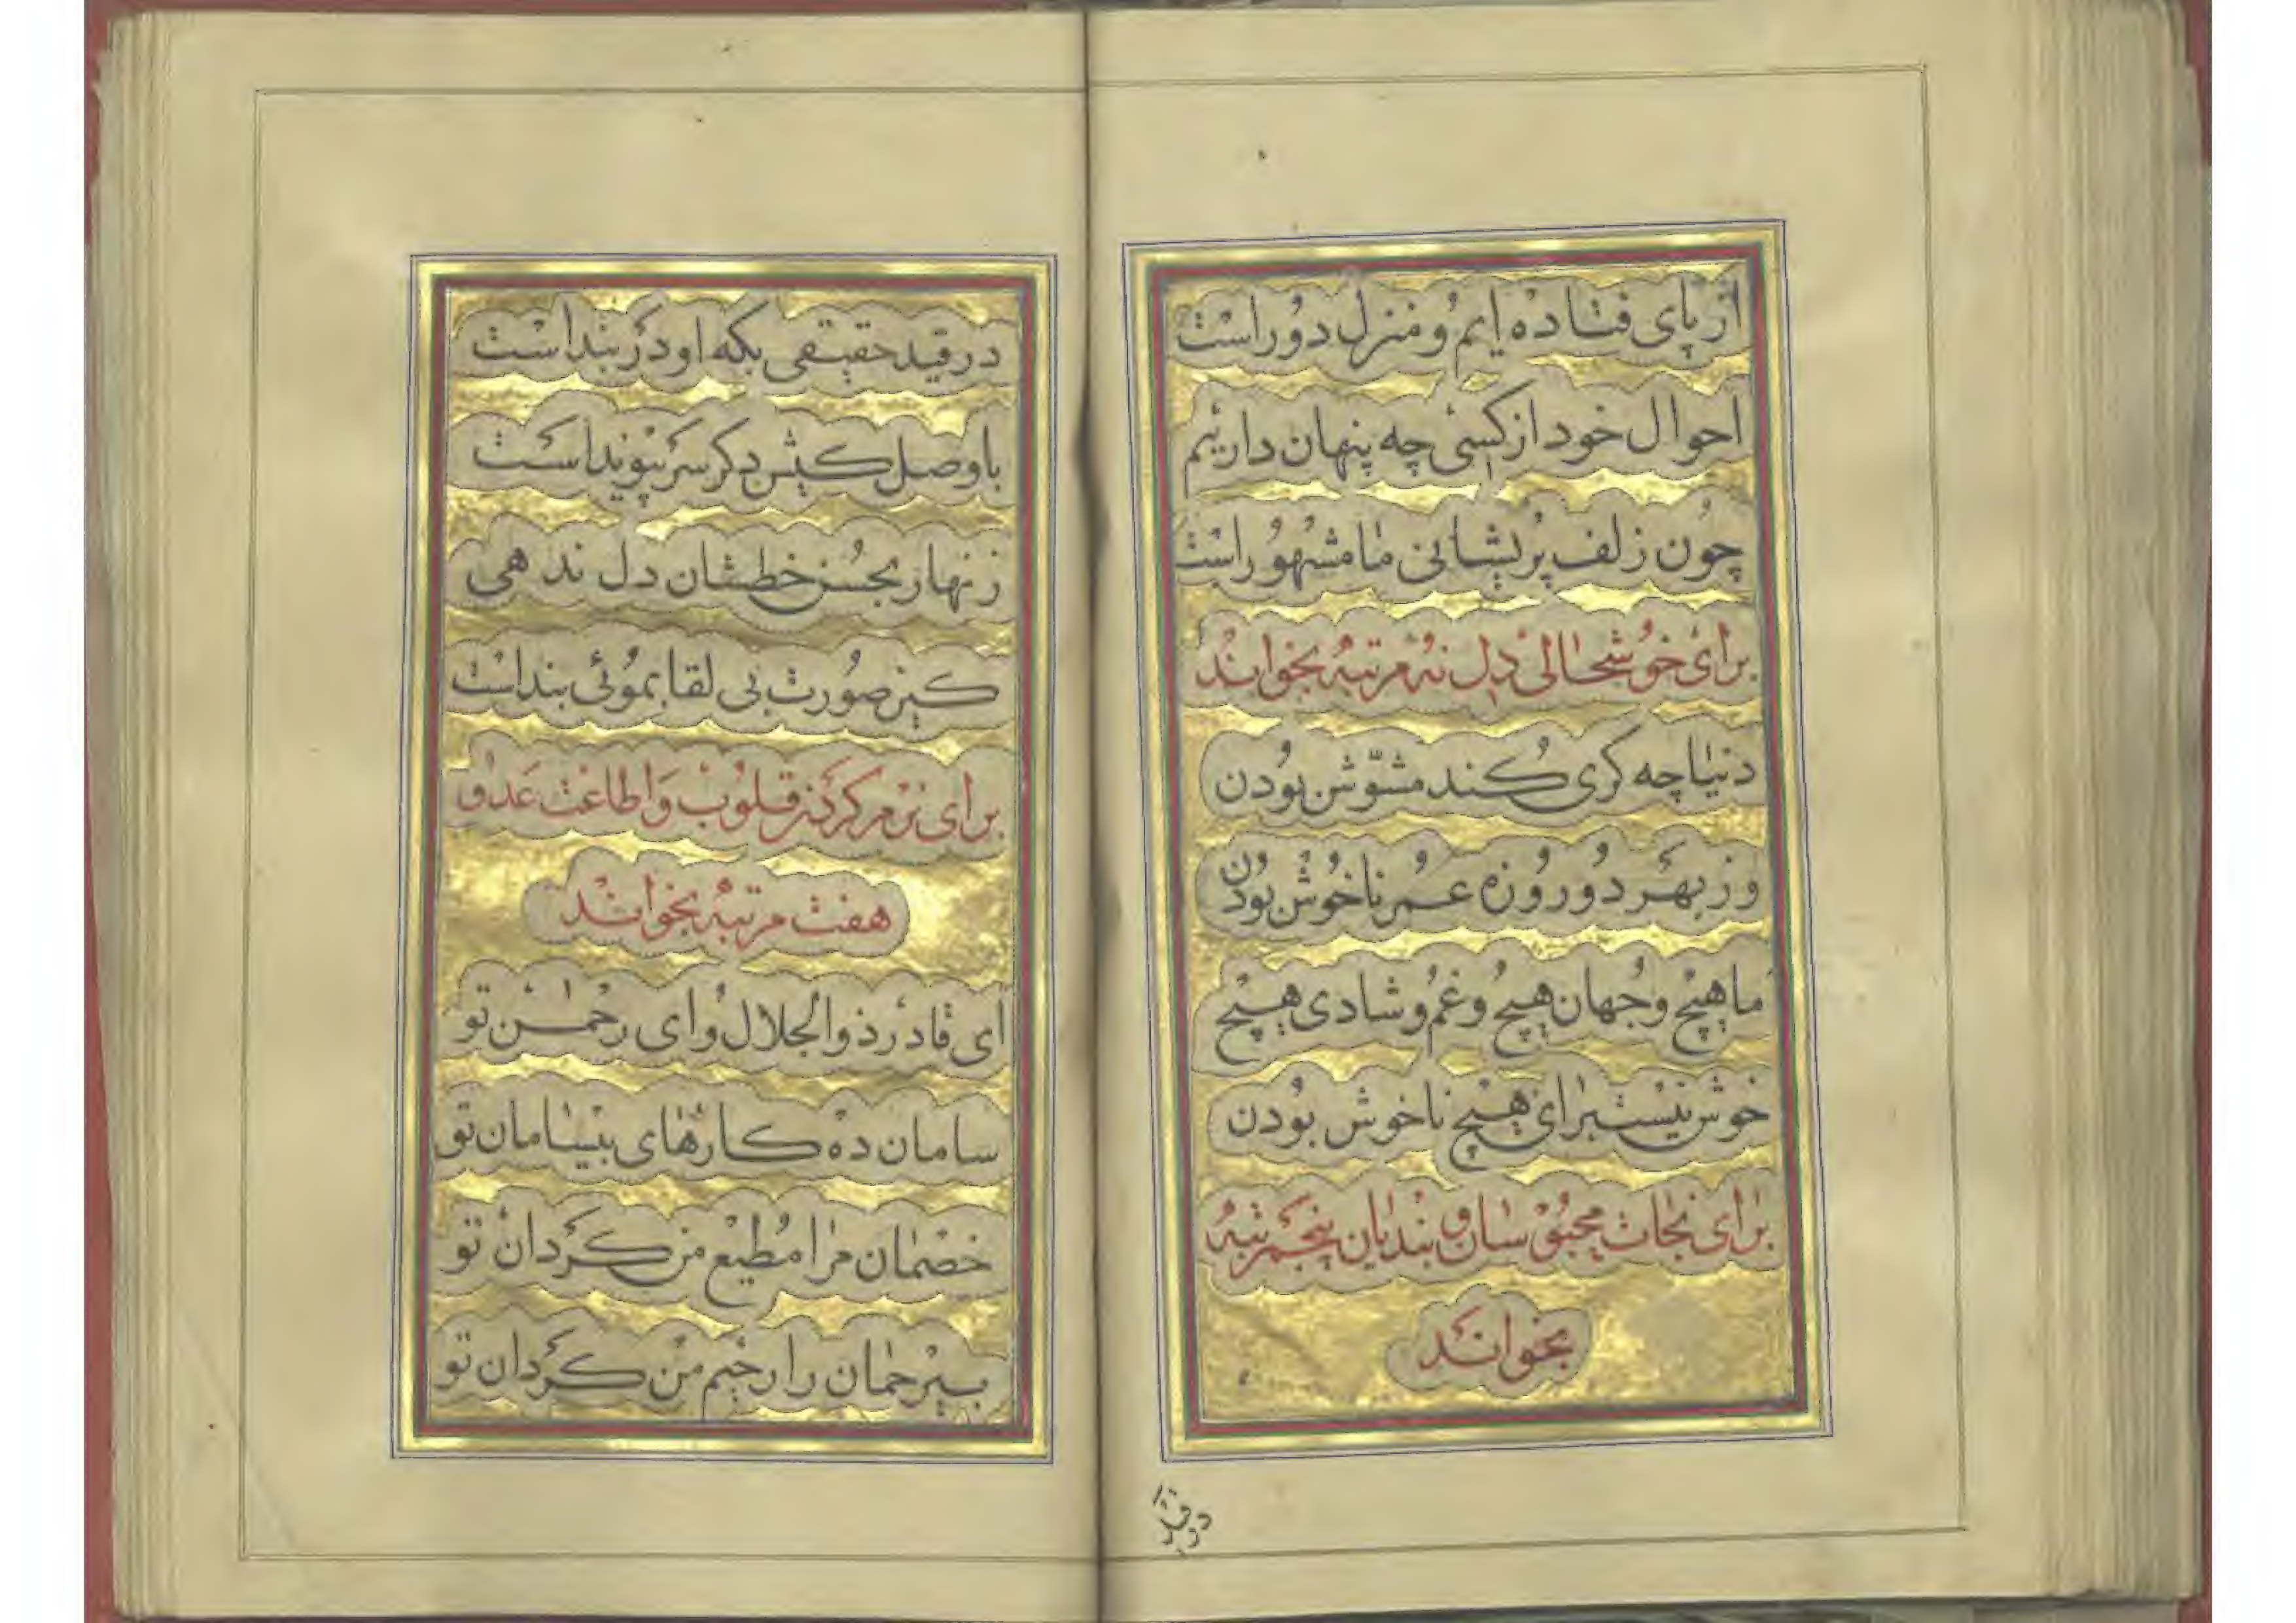 از پای فتاده ایم و منزل دور است
احوال خود از کسی چه پنهان داریم
چون زلف پریشانی ما مشهور است
برای خوشحالی دل نه مرتبه بخوانند
دنیا چه کری کند مشوش بودن
وز بهر دو روزه عمر ناخوش بودن
ما هیچ و جهان هیچ و غم و شادی هیچ
خوش نیست برای هیچ ناخوش بودن
برای نجات محبوسان و بندیان پنجمرتبه
بخوانند
در قید
در قید حقیقی بکه او در بند است
با وصل کیش دکر سر پیوند است
زنهار بحسن خطشان دل ندهی
کین صورت بی لقا بموئی بند است
برای نرم کردن قلوب و اطاعت عدو
هفت مرتبه بخوانند
ای قادر ذوالجلال و ای رحمن تو
سامان ده کارهای بیسامان تو
خصمان مرا مطیع من کردان تو
بیرحمان را رحیم من کردان تو